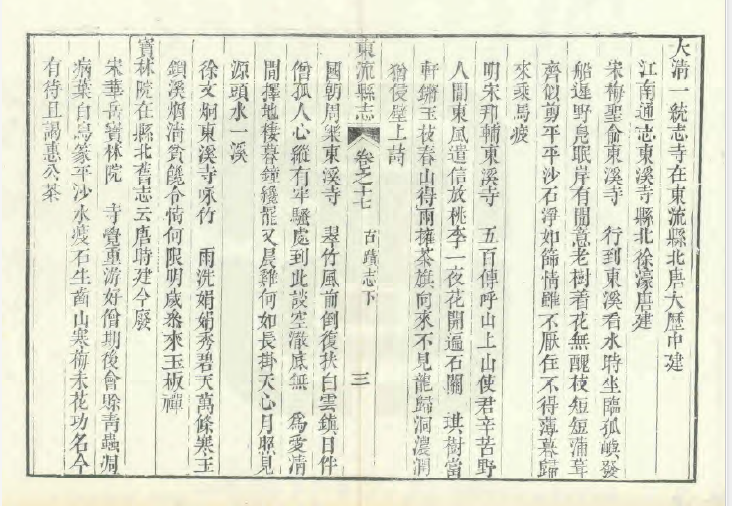 大清一統志寺在東流縣北唐大歷中建
江南通志東溪寺縣北徐濠唐建
宋梅聖俞東溪寺　行到東溪看水時坐臨孤嶼發
船遲野鳧眠岸有閒意老樹着花無醜枝短短蒲茸
齊似剪平平沙石淨如篩情雖不厭住不得薄暮歸
來乘馬疲
明宋邦輔東溪寺　五百傳呼山上山使君辛苦野
人閒東風遣信放桃李一夜花開遍石關　琪樹當
軒鏘玉枝春山得雨擁茶旗向來不見龍歸洞濃潤
猶侵壁上詩
東流縣志　卷之十七　古蹟志下　三
國朝周　東溪寺　翠竹風前倒復扶白雲鎮日伴
僧孤人心縱有牢騷處到此談空澈底無　為愛清
閒擇地棲暮鐘纔罷又晨雞何如長掛天心月照見
源頭水一溪
徐文炯東溪寺咏竹　雨洗娟娟秀碧天萬條寒玉
鎖溪烟清貧饞令　何限明歲叅來玉板禪
寶林院在縣北舊志云唐時建今廢
宋華岳寶林院　寺覺重游好僧期後會賒青蟲凋
病葉白鳥篆平沙水瘦石生齒山寒梅未花功名今
有待且謁惠公茶